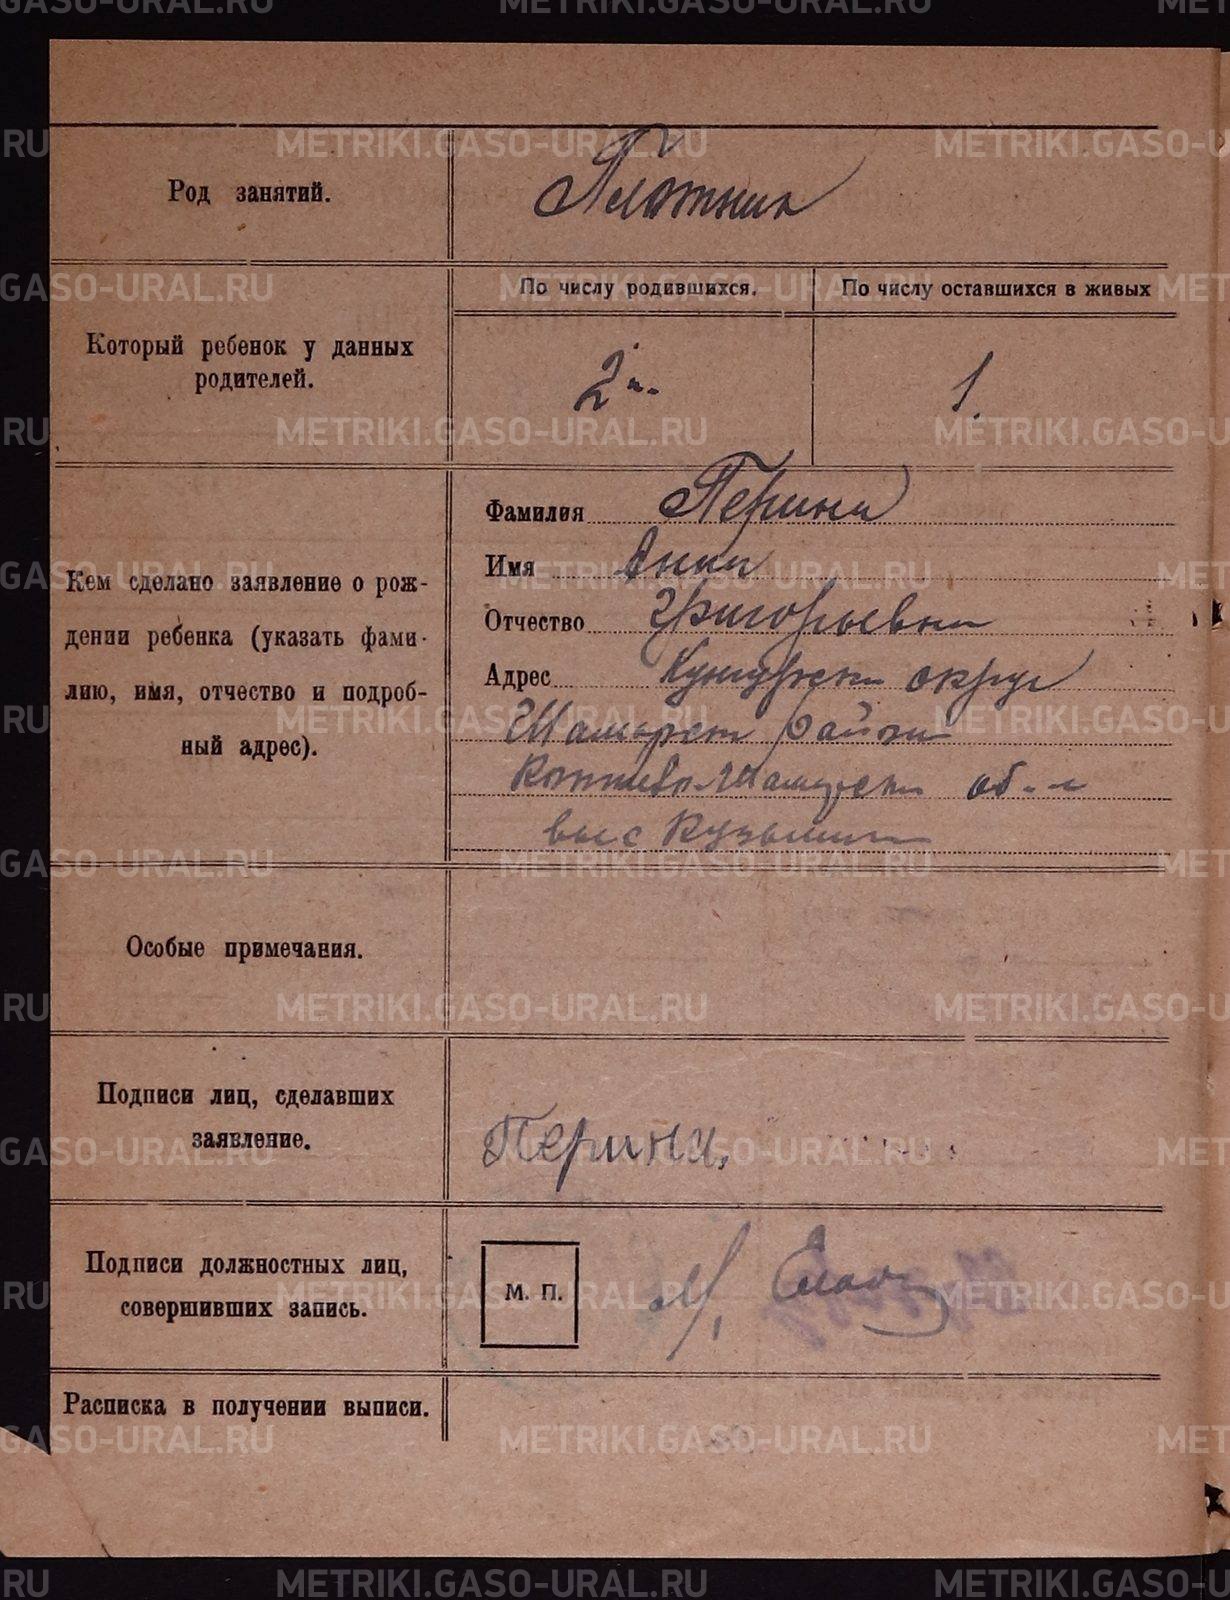 METRIKI.GASO-URAL.RU
Род занятий.
Плотник
Который ребенок у данных
родителей.
По числу родившихся.
По числу оставшихся в живых
2й.
1.
Кем сделано заявление о рож-
дении ребенка (указать фами-
лию, имя, отчество и подроб-
ный адрес).
Фамилия Перина
Имя Анна
Отчество Григорьевна
Адрес Кунгурск округ
Шамарск район
Шамарск об-а
выс Кузьмин
Особые примечания.
Подписи лиц, сделавших
заявление.
Перина.
Подписи должностных лиц,
совершивших запись.
М. П.
Расписка в получении выписи.